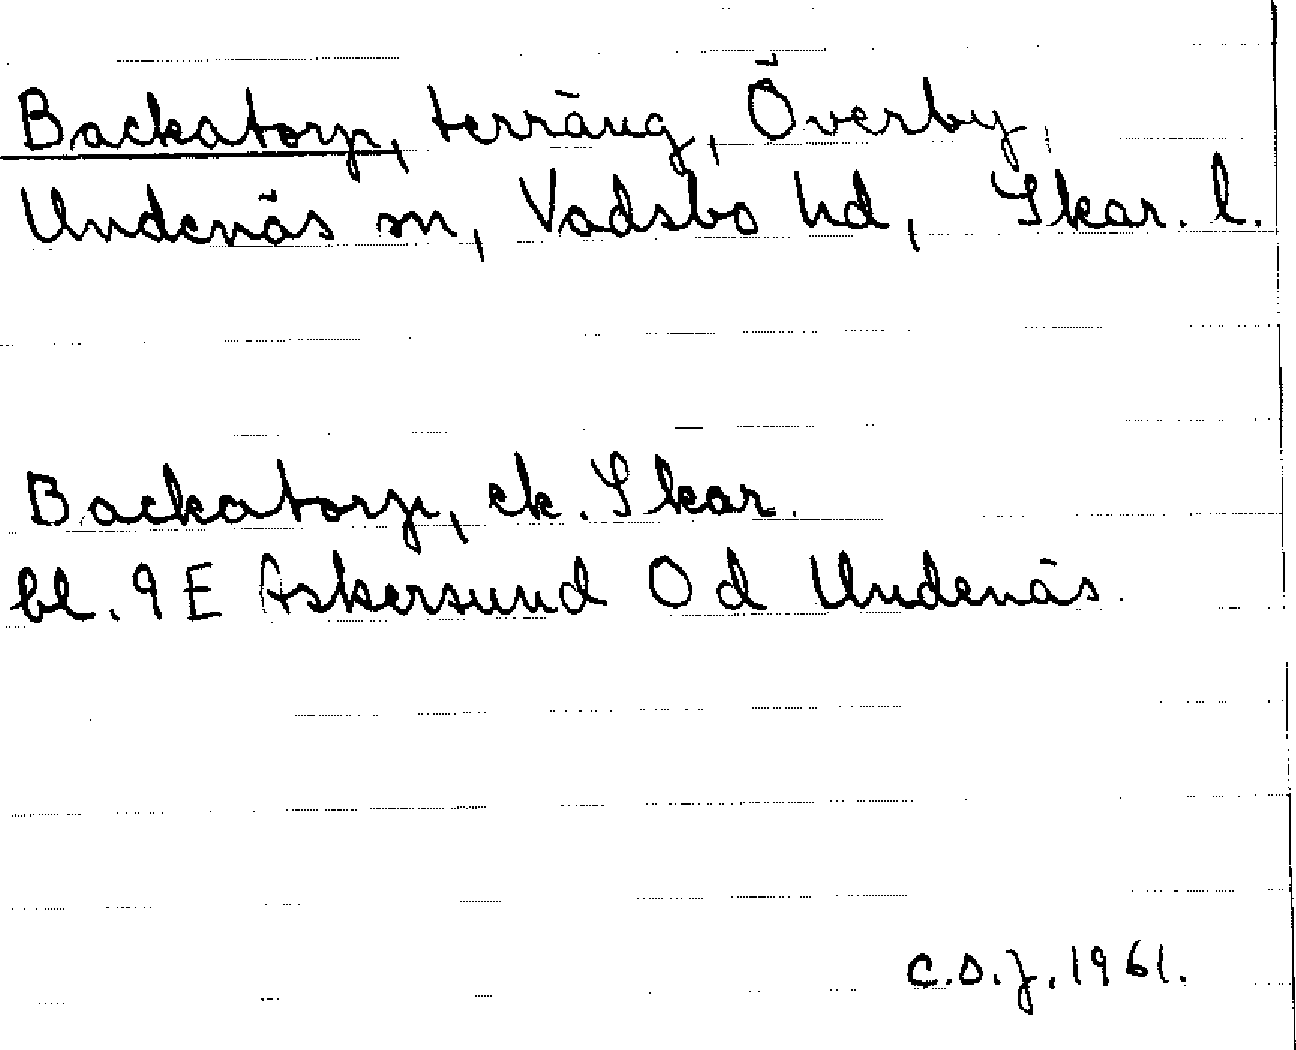 Backatorp, terräng, Överby,
Undenäs sn, Vadsbo hd, Skar. l.
Backatorp, ek. Skar.
bl. 9 E Askersund 0 d Undenäs.
C.O.J. 1961.